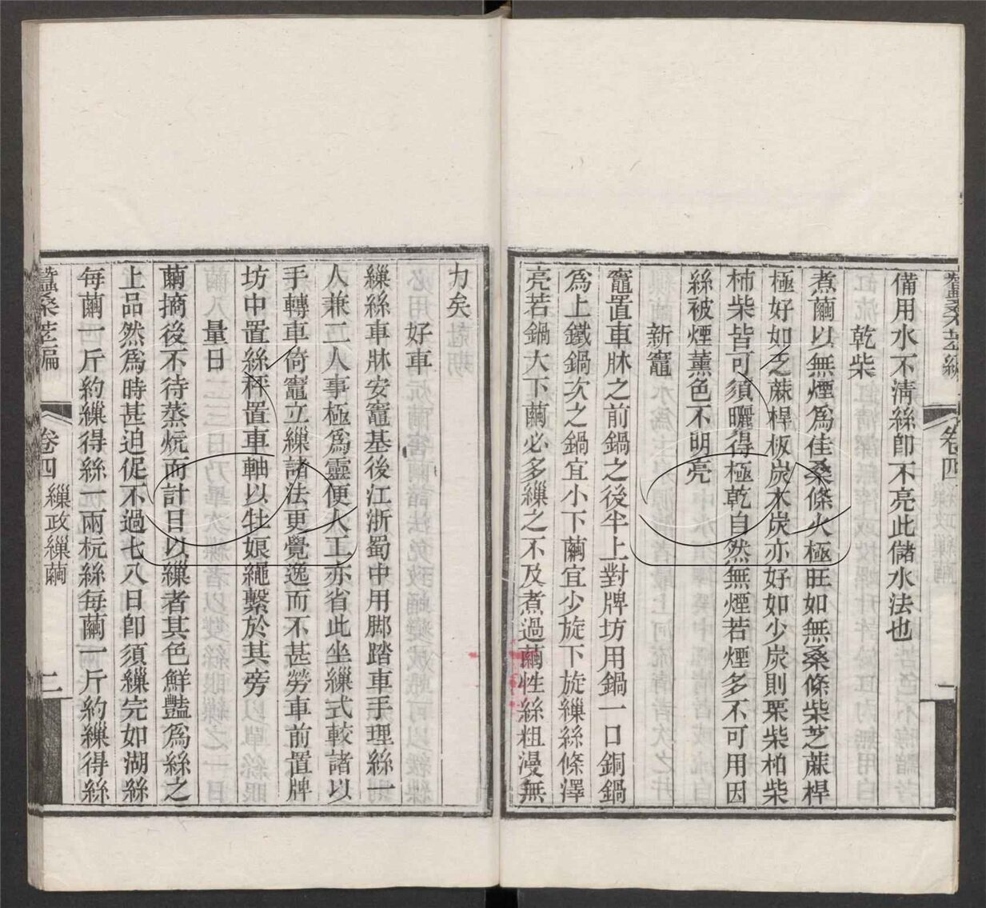 蠶桑萃編
卷四
一
備用水不淸絲卽不亮此儲水法也
乾柴
煮繭以無煙爲佳桑條火極旺如無桑條柴芝蔴桿
極好如乏蔴桿板炭木炭亦好如少炭則栗柴柏柴
柿柴皆可須曬得極乾自然無煙若煙多不可用因
絲被煙薰色不明亮
新竈
竈置車牀之前鍋之後半上對牌坊用鍋一口銅鍋
爲上鐵鍋次之鍋宜小下繭宜少旋下旋繅絲條澤
亮若鍋大下繭必多繅之不及煮過繭性絲粗漫無
力矣
好車
繅絲車牀安竈基後江浙蜀中用脚踏車手理絲一
人兼二人事極爲靈便人工亦省此坐繅式較諸以
手轉車倚竈立繅諸法更覺逸而不甚勞車前置牌
坊中置絲秤置車軸以牡娘繩繫於其旁
量日
繭摘後不待蒸炕而計日以繅者其色鮮豔爲絲之
上品然爲時甚迫促不過七八日卽須繅完如湖絲
每繭一斤約繅得絲一兩杬絲每繭一斤約繅得絲
蠶桑萃編
卷四
繅政繅繭
二